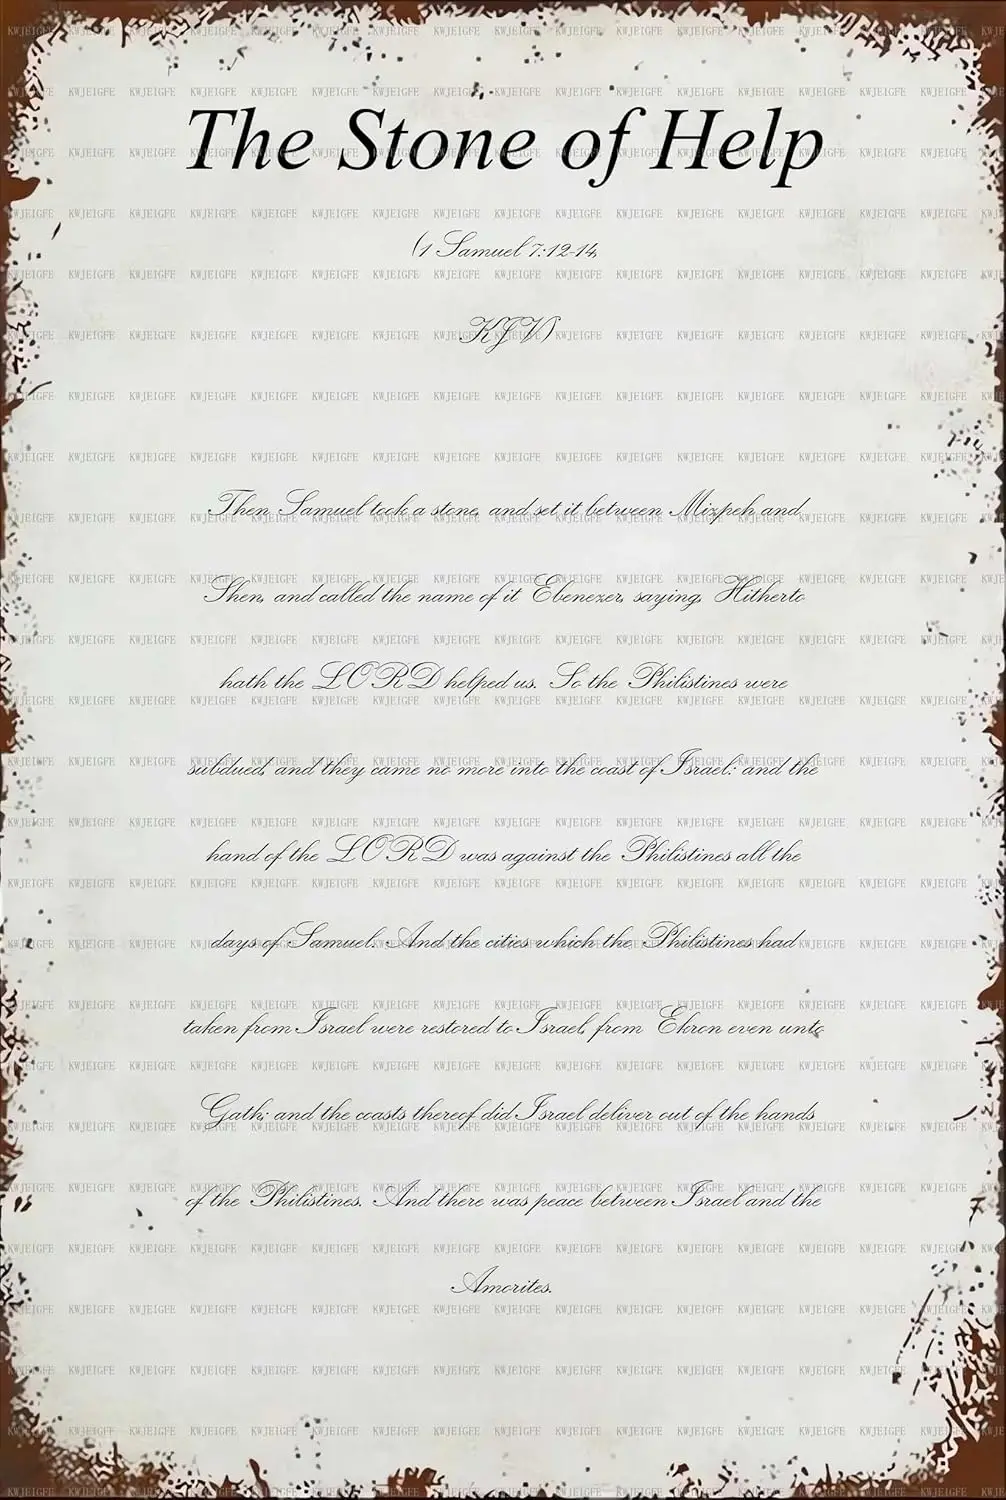 The Stone of Help
(1 Samuel 7:12-14,
KJV)
Then Samuel took a stone, and set it between Mizpeh and
Shen, and called the name of it Ebenezer, saying, Hitherto
hath the LORD helped us. So the Philistines were
subdued, and they came no more into the coast of Israel: and the
hand of the LORD was against the Philistines all the
days of Samuel. And the cities which the Philistines had
taken from Israel were restored to Israel, from Ekron even unto
Gath; and the coasts thereof did Israel deliver out of the hands
of the Philistines. And there was peace between Israel and the
Amorites.
KWJEIGFE